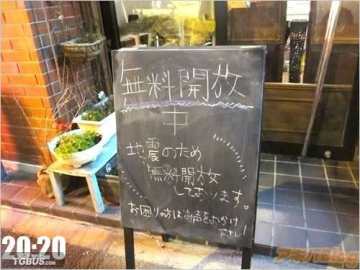 無料開放
中
地震のため
無料開放
しております。
お困りの方は お声をおかけ
下さい!
20:20
TGBUS.COM